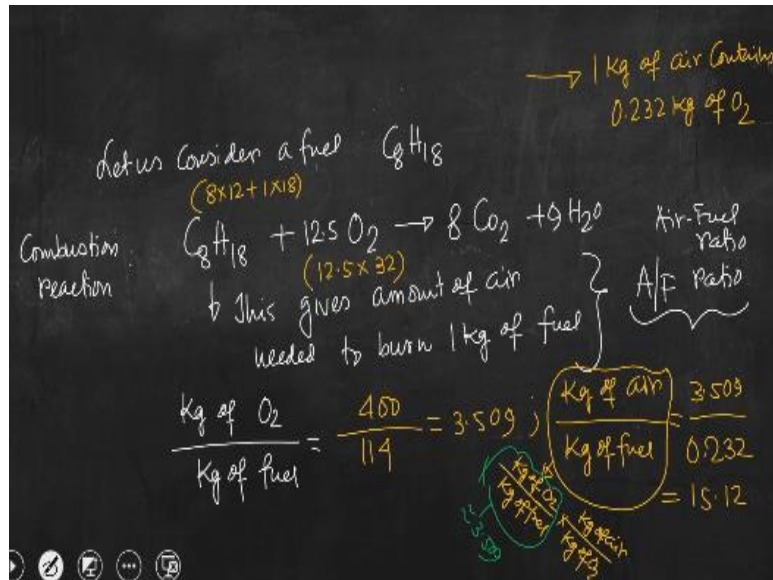 → 1 Kg of air Contains
0.232 kg of O2
Let us Consider a fuel C8H18
(8×12+1×18)
Combustion reaction
C8H18 + 12.5 O2 → 8 CO2 + 9 H2O
(12.5×32)
This gives amount of air
needed to burn 1 kg of fuel
Air-Fuel
ratio
A/F ratio
Kg of O2 / Kg of fuel = 400 / 114 = 3.509 ; Kg of air / Kg of fuel = 3.509 / 0.232
= 15.12
Kg of O2 / Kg of fuel × Kg of air / Kg of O2
3.509